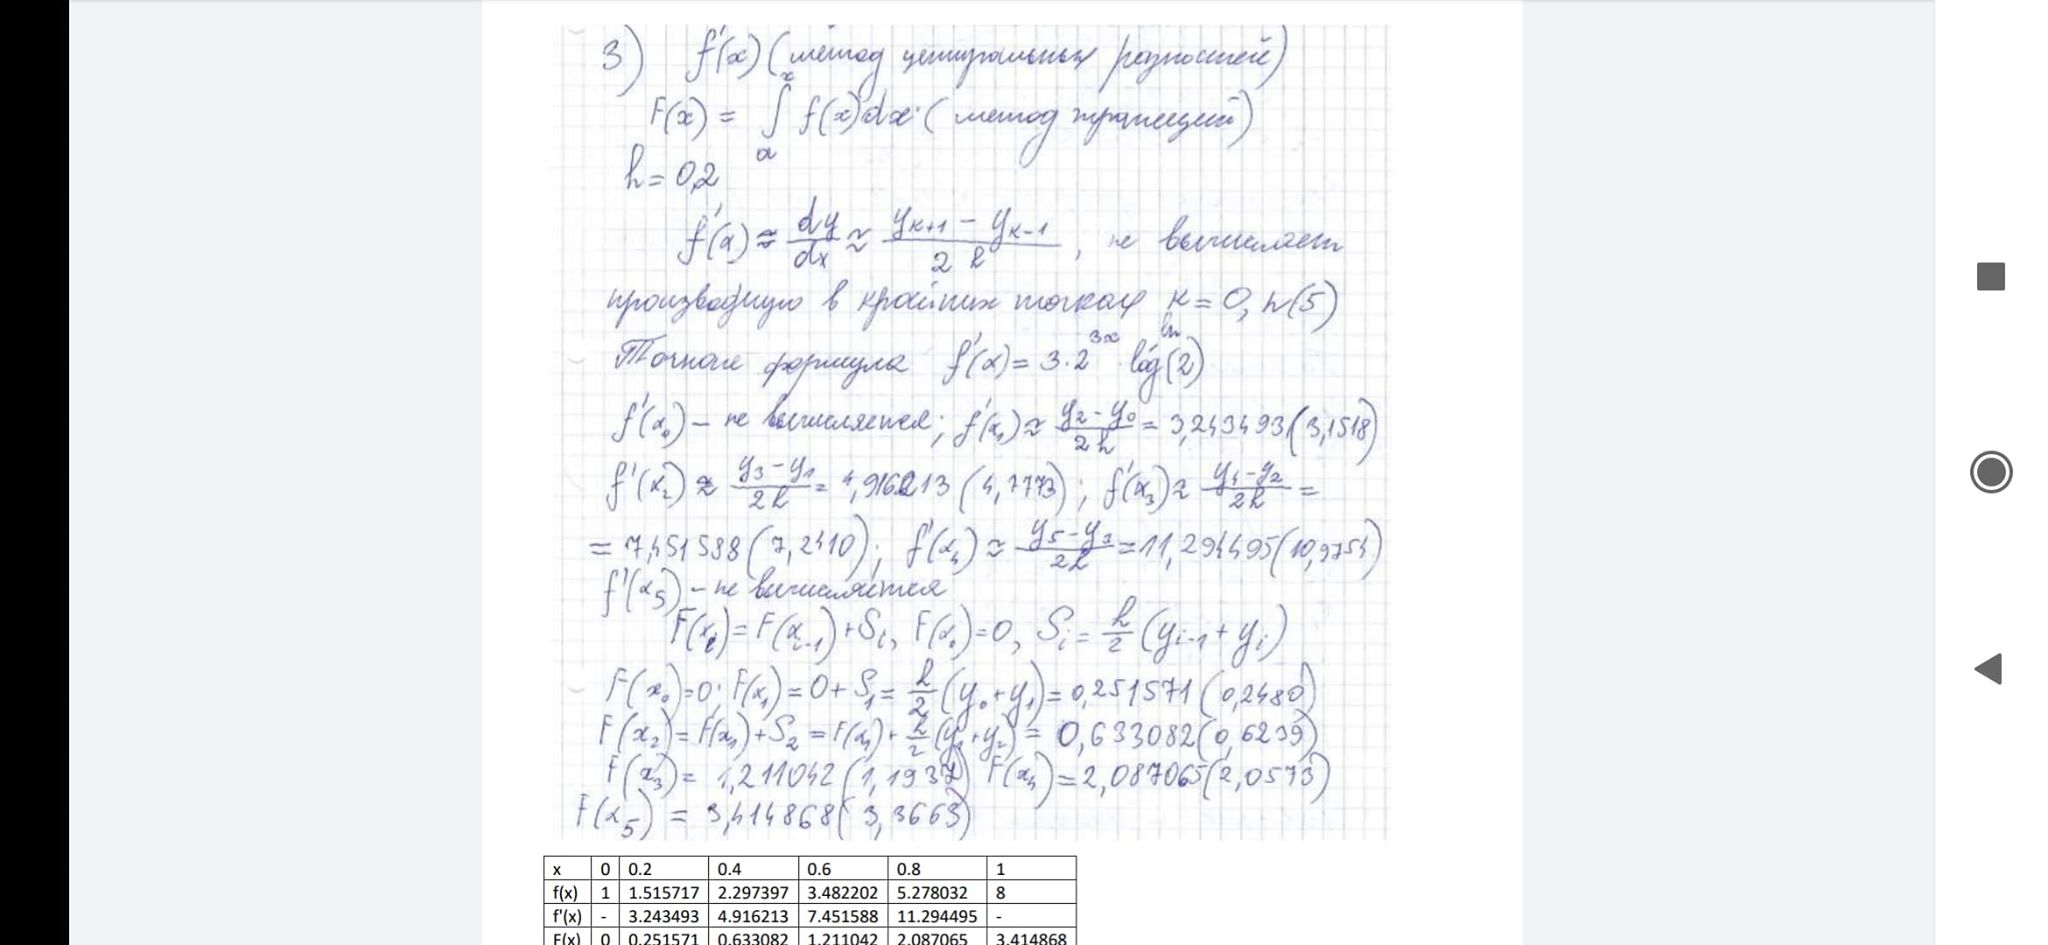 3) f'(x) (метод центральных разностей)
F(x) = ∫ₐˣ f(x)dx (метод трапеций)
h = 0,2
f'(x) ≈ dy/dx ≈ (yₖ₊₁ - yₖ₋₁)/(2h), не вычисляет
производную в крайних точках к = 0, n(5)
Точная формула f'(x) = 3·2³ˣ · log(2) ln
f'(x₀) - не вычисляется; f'(x₁) ≈ (y₂-y₀)/(2h) = 3,243493 (3,1518)
f'(x₂) ≈ (y₃-y₁)/(2h) = 4,916213 (4,7773); f'(x₃) ≈ (y₄-y₂)/(2h) =
= 7,451588 (7,2410); f'(x₄) ≈ (y₅-y₃)/(2h) = 11,294495 (10,9754)
f'(x₅) - не вычисляется
F(xᵢ) = F(xᵢ₋₁) + Sᵢ, F(x₀) = 0, Sᵢ = h/2 (yᵢ₋₁ + yᵢ)
F(x₀) = 0; F(x₁) = 0 + S₁ = h/2 (y₀ + y₁) = 0,251571 (0,2480)
F(x₂) = F(x₁) + S₂ = F(x₁) + h/2 (y₁ + y₂) = 0,633082 (0,6239)
F(x₃) = 1,211042 (1,1937) F(x₄) = 2,087065 (2,0573)
F(x₅) = 3,414868 (3,3663)
x 0 0.2 0.4 0.6 0.8 1
f(x) 1 1.515717 2.297397 3.482202 5.278032 8
f'(x) - 3.243493 4.916213 7.451588 11.294495 -
F(x) 0 0.251571 0.633082 1.211042 2.087065 3.414868